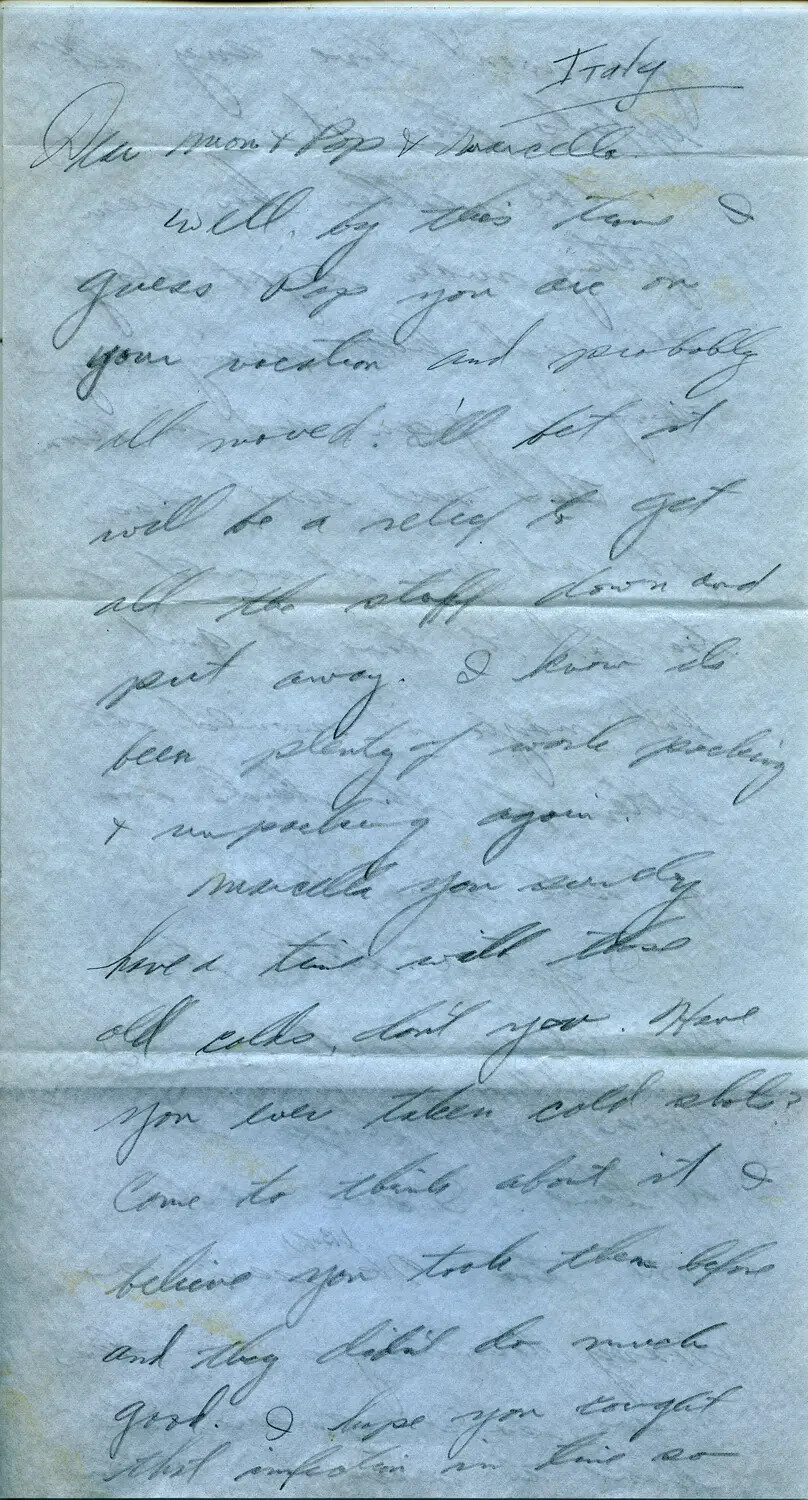 Italy
Dear Mom & Pop & Marcella.
Well, by this time I
guess Pop you are on
your vacation and probably
all moved. I'll bet it
will be a relief to get
all the stuff down and
put away. I know its
been plenty of work packing
& unpacking again.
Marcella you surely
have a time with those
old colds, don't you. Have
you ever taken cold shots?
Come to think about it I
believe you took them before
and they didn't do much
good. I hope you caught
that infection in time so